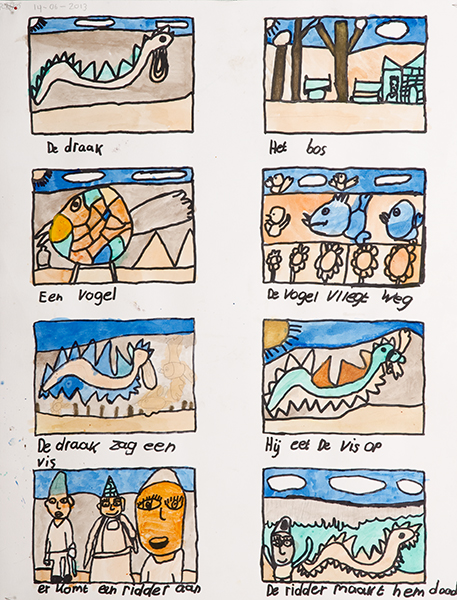 14-06-2013
De draak
Het bos
Een vogel
De vogel vliegt weg
De draak zag een
vis
Hij eet De vis op
er komt een ridder aan
De ridder maakt hem dood